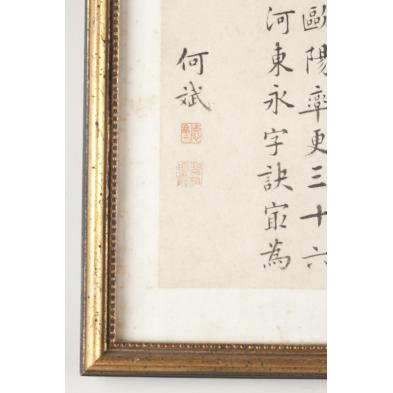 歐陽率更三十六
河東永字訣宼為
何斌